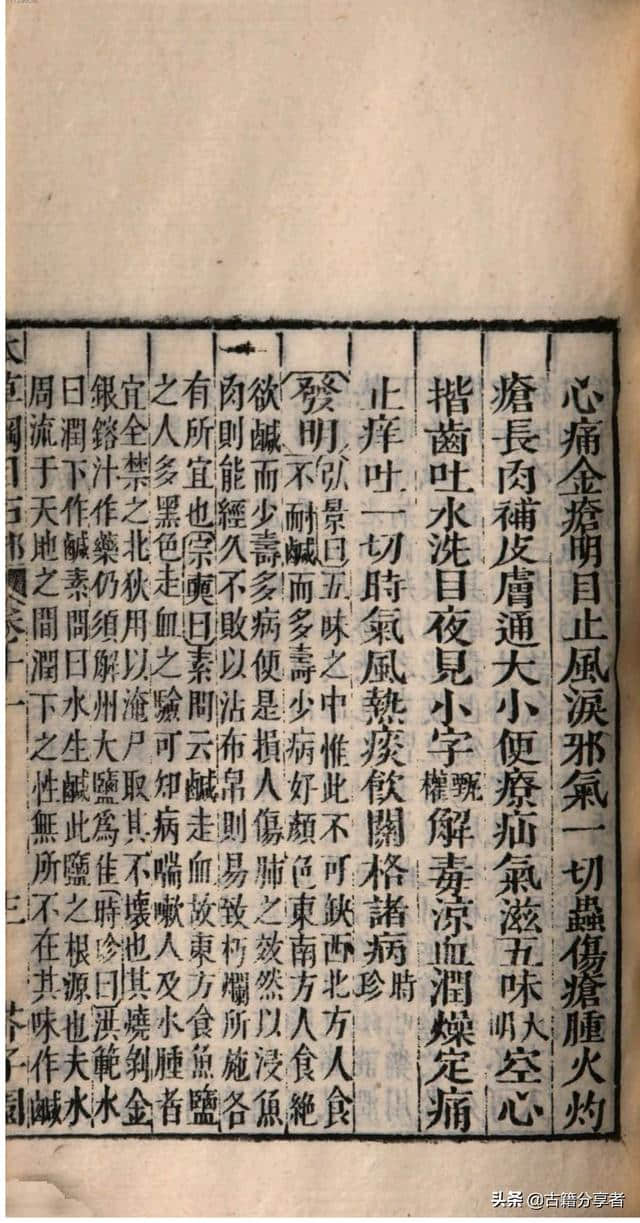 心痛金瘡明目止風淚邪氣一切蟲傷瘡腫火灼
瘡長肉補皮膚通大小便療疝氣滋五味大明空心
揩齒吐水洗目夜見小字甄權解毒涼血潤燥定痛
止痒吐一切時氣風熱痰飲關格諸病時珍
發明弘景曰五味之中惟此不可缺西北方人食
不耐鹹而多壽少病好顏色東南方人食絕
欲鹹而少壽多病便是損人傷肺之效然以浸魚
肉則能經久不敗以沾布帛則易致朽爛所施各
有所宜也宗奭曰素問云鹹走血故東方食魚鹽
之人多黑色走血之驗可知病喘嗽人及水腫者
宜全禁之北狄用以淹尸取其不壞也其燒剝金
銀鎔汁作藥仍須解州大鹽爲佳時珍曰洪範水
曰潤下作鹹素問曰水生鹹此鹽之根源也夫水
周流于天地之間潤下之性無所不在其味作鹹
本草綱目石部 卷十一 三 芥子園
头条 @古籍分享者